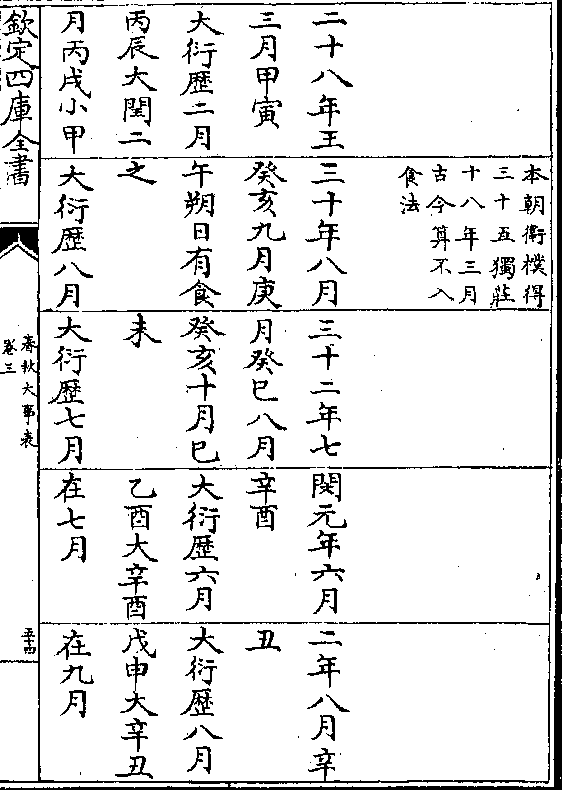 二十八年王
三月甲寅
大衍歴二月
丙辰大閏二
月丙戌小甲
本朝衛樸得
三十五獨莊
十八年三月
古今算不入
食法
三十年八月
癸亥九月庚
午朔日有食
之
大衍歴八月
三十二年七
月癸巳八月
癸亥十月己
未
大衍歴七月
閔元年六月
辛酉
大衍歴六月
乙酉大辛酉
在七月
二年八月辛
丑
大衍歴八月
戊申大辛丑
在九月
欽定四庫全書
春秋大事表
卷三
五十四